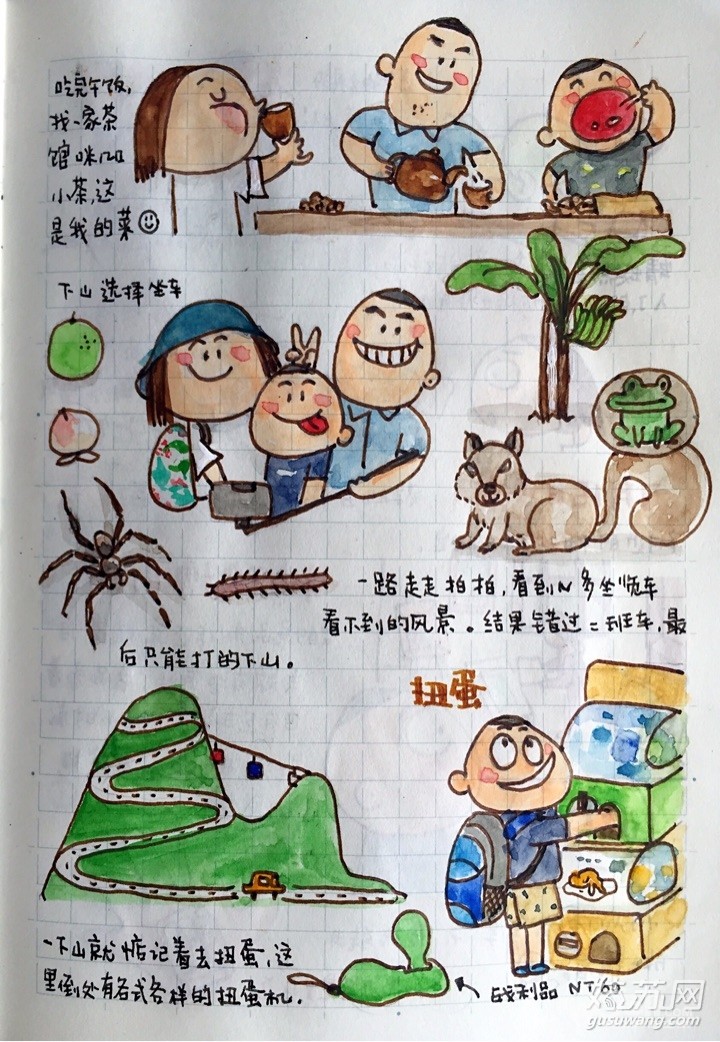 吃完午饭,
找一家茶
馆眯几口
小茶,这
是我的菜
下山选择坐车
一路走走拍拍,看到N多坐缆车
看不到的风景。结果错过二班车,最
后只能打的下山。
扭蛋
一下山就惦记着去扭蛋,这
里到处有各式各样的扭蛋机.
战利品 NT/60
姑苏网
gusuwang.com